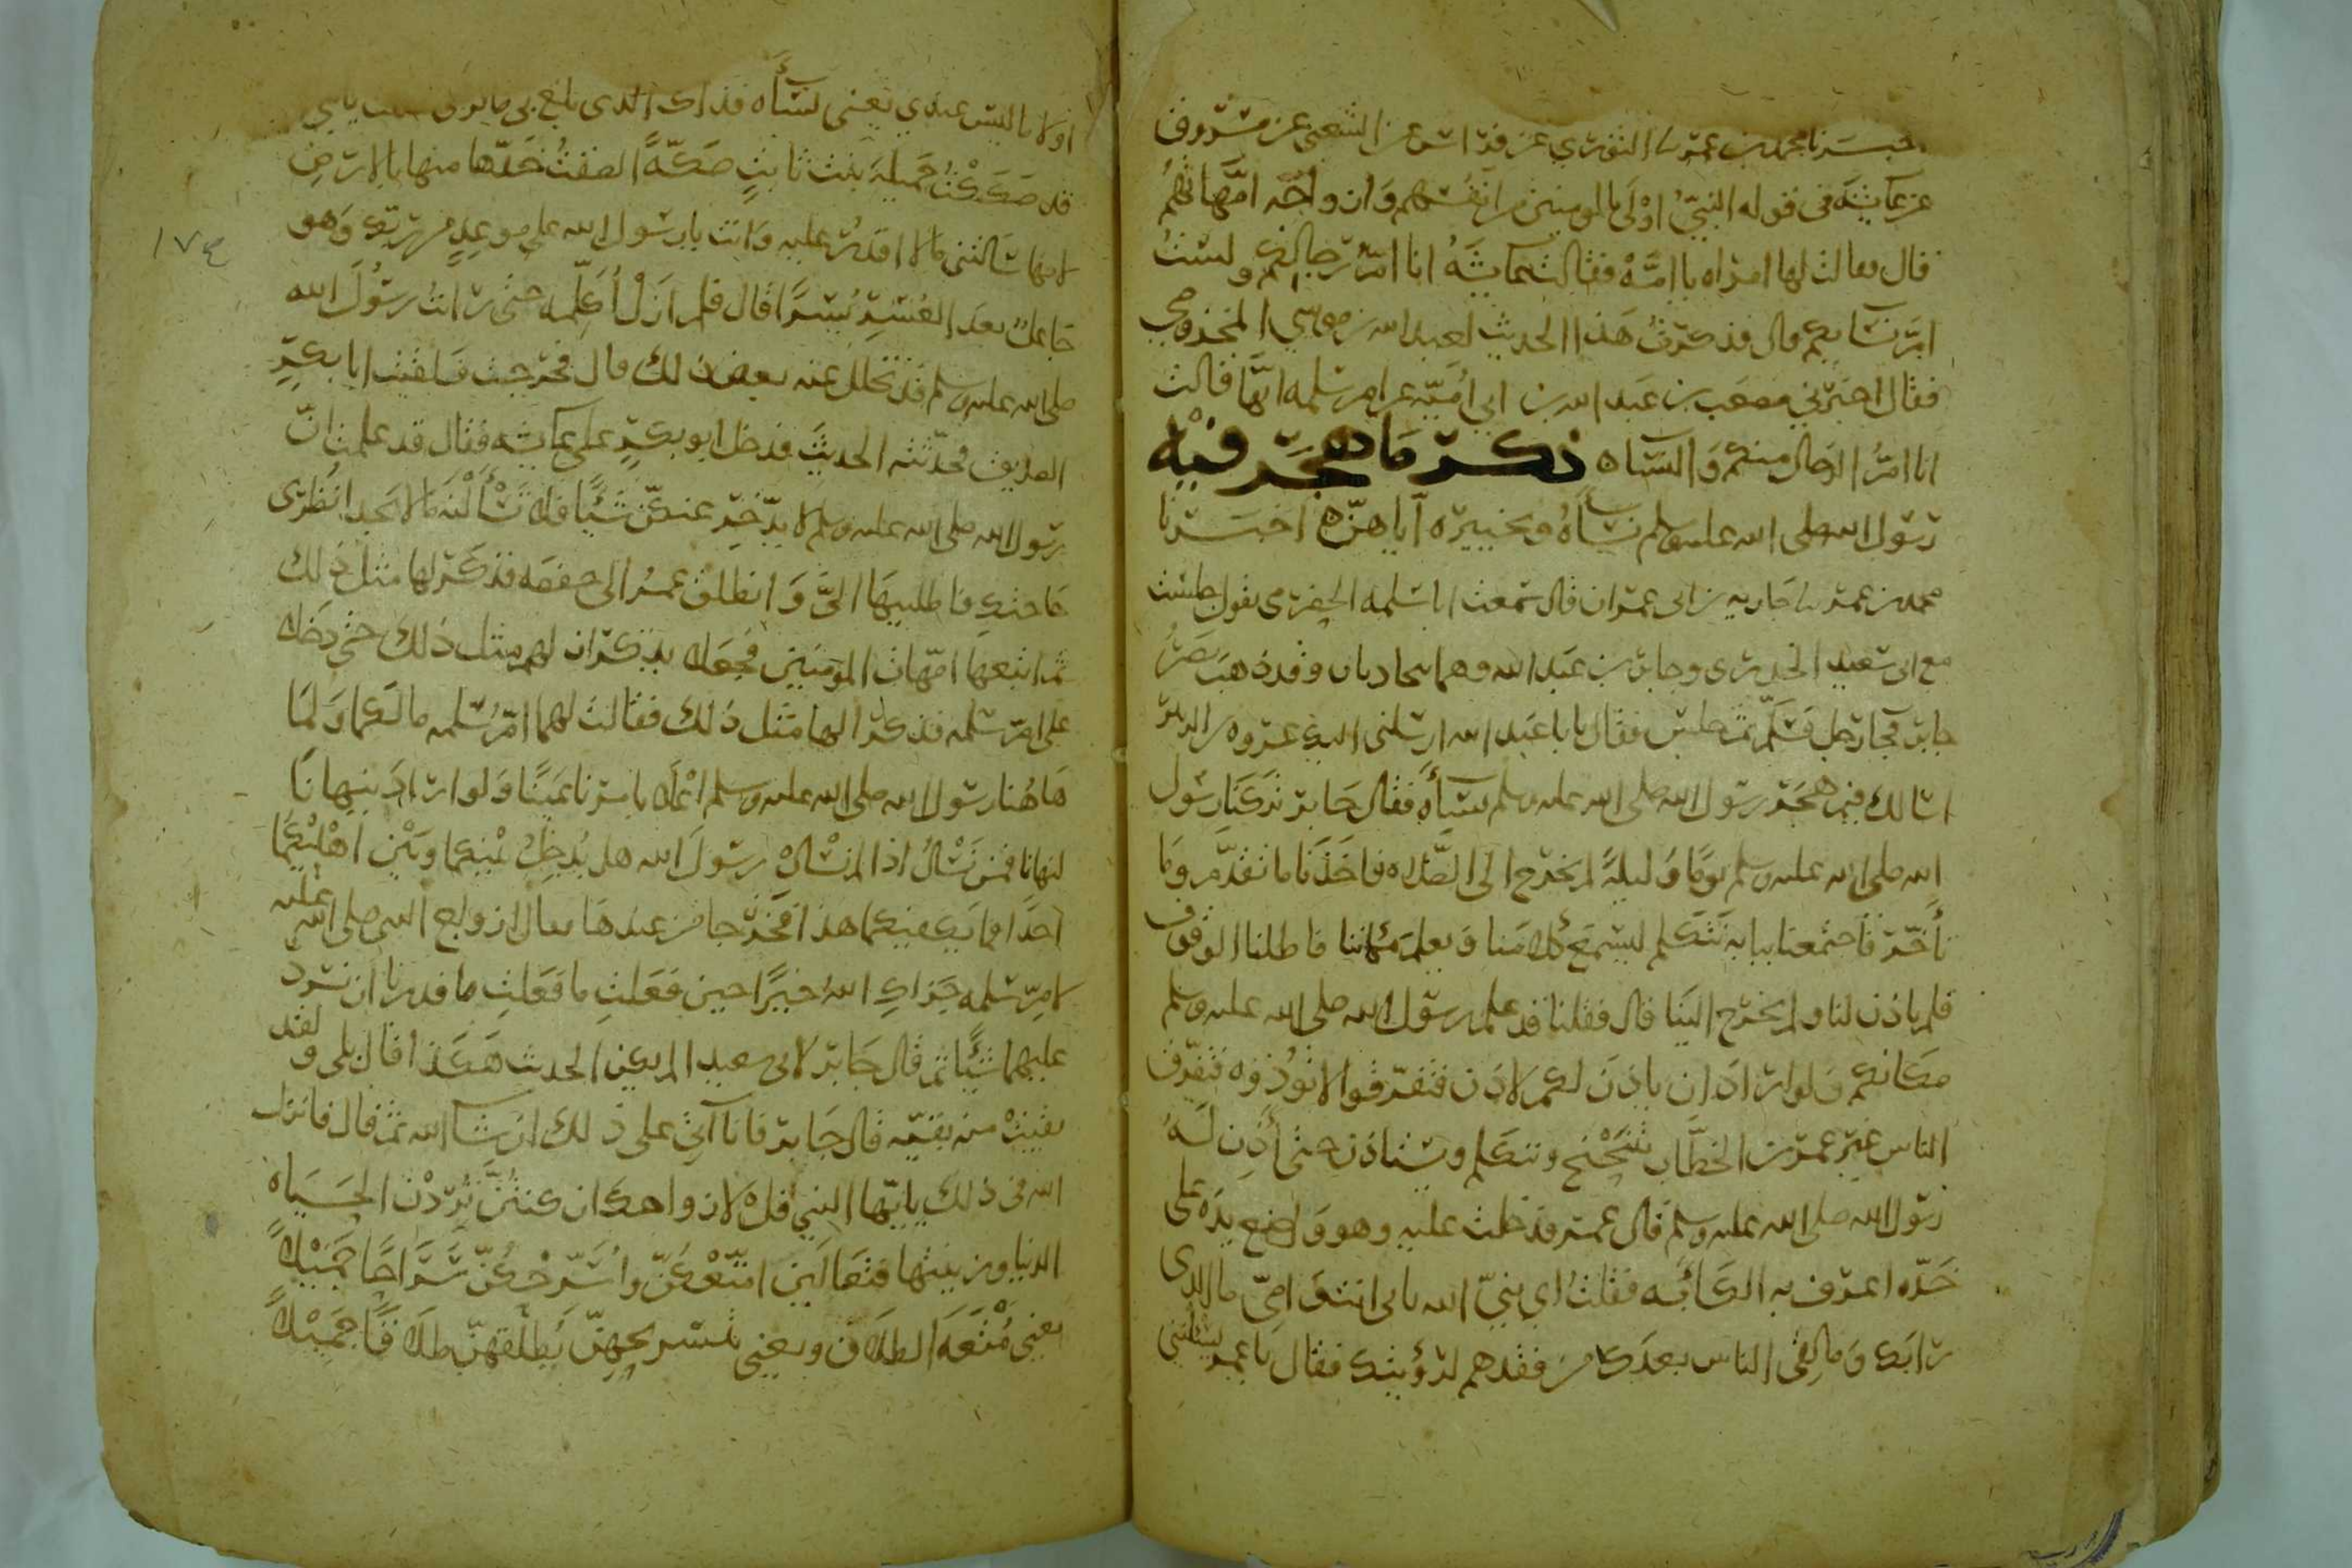 اخبرنا محمد بن عمر نا الثوري عن فراس عن الشعبي عن مسروق
عن عائشة في قوله النبيُّ اوْلَى بالمومنين من انفُسهم وَازواجُه امَّهاتُهُمْ
قال فقالت لها امراه يا امَّهْ فقالت عائشَهُ انا امّ رجالِكُم ولستُ
امّ نسايكم قال فذكرتُ هَذا الحديث لعبد الله بن موسي المخزومي
فقال اخبَرَني مصعَب بن عَبد الله بن ابي اُميَّه عن ام سلمه انهَّا قالت
انا امُّ الرجال منكم وَالنسآء ذكر مَا هَجَر فيْه
رسول الله صلى الله عليه وسلم نسآءهُ وتخييره اياهنّ اخبَسرنا
محمد بن عمر نا جاريه بن ابي عمران قال سَمعت ابا سَلمه الحضرمي يقول جلست
مع ابي سَعيد الخدري وجابر بن عَبد الله وهما يتحادثان وقد ذهبَ بصَرُ
جابر فجا رجل فسَلّم ثم جلس فقال يا با عَبد الله ارسلني اليك عروه بن الزبير
اسالك فيم هَجَر رسول الله صلى الله عليه وسلم نسآءَه فقال جَابر تركنَا رسول
الله صلى الله عليه وسلم يومًا وَليلةً لم يخرج الى الصَّلاه فاخَذَنا ما تقدَّم ومَا
تأخّرَ فاجتمعنا ببابه نتكلم ليسْمَع كلامَنا وَيعلمَ مكاننا فاطلنا الوقوف
فلم ياذن لنا ولم يخرج الينَا قال فقلنا قد علم رسول الله صلى الله عليه وسلم
مكانكم وَلو ارادَ ان ياذنَ لكم لاذن فتفرّقوا لا تُوذوُه فتفرّق
الناس غير عمر بن الخطَّاب يتنَحْنح ويتكلم ويستاذن حتى أذِنَ لَهُ
رسول الله صلى الله عليه وسلم قال عمر فدخلت عليه وهو وَاضع يدَه على
خَدّه اعرف به الكآبَه فقلتُ اي نبيّ الله بابي انت وَامِّي ما الذي
رابك وَما لقي الناس بعدَك من فقدهم لرؤيتك فقال يَا عمر يسئلنني
اولاء ما ليسَ عندي يَعنى نسآءه فذاك الذي بلغ بي ما ترى فقلت يا نبي
قد صَكَكْتُ جَميلةَ بنت ثابتٍ صَكّةً الصَقتُ خَدّها منها بالارضِ
لانها سَالتني ما لا اقدِرُ عليه وَانت يا رسُول الله على موعدٍ من ربّك وَهو
جَاعلٌ بعدَ العُسْرِ يُسْرًا قال فلم ازَلْ اُكلّمه حتى راتُ رسُولَ الله
صلى الله عليه وسلم قد تحَلل عنه بعض ذلك قال فخرجت فَلقيتُ ابا بكرٍ
الصديق فحدّثته الحديثَ فدخل ابو بكرٍ على عَائشه فقال قد علمتِ انّ
رسول الله صلى الله عليه وسلم لا يدّخِر عنكنّ شيًا فلا تسْألنه مَا لا يجد انظُري
حَاجتكِ فاطلبيهَا اليَّ وَانطلقَ عمرُ الى حفصَه فذكَر لها مثل ذلك
ثم اتبعها امّهات المومنين فجَعلا يذكران لهم مثل ذلك حتى دخَلا
على ام سَلمه فذكرا لها مثل ذلك فقالت لهما امّ سُلمه ما لكما وَلمَا
هَاهُنا رسُول الله صلى الله عليه وسلم اعْلاَ بامرنا عَيْنًا وَلو ارادَ ينهانَا
لنهانا فمن نسْالُ اذا لم نسْال رسوُلَ الله هل يُدخِلُ بينكما وبَيْن اهْليْكمَا
احَدًا فما يكلفكما هذا فخرَجا من عندهَا فقال ازواج النبي صلى الله عليه
لام سَلمه جزاكِ اللهُ خيرًا حين فعَلتِ ما فعَلتِ ما قدرنا ان نرد
عليهما شَيًا ثم قال جَابر لابي سعيد الم يكن الحديث هَكذا قال بلى وَلقد
بقيتْ منه بقيّه قال جَابر فانا آتي على ذلك ان شا الله ثم قال فانزل
الله في ذلك يا ايّها النبي قل لازواجك ان كنتنَّ تُردْن الحَيَاه
الدنيا وزينتها فتعَالين امتّعْكنَّ واُسَرّحْكُنَّ سَرَاحًا جَميْلاً
يعني مُتْعَهَ الطلاَق ويعني بتسريحهنّ يُطلّقهنّ طلاَقًا جَميْلاً
١٧٤